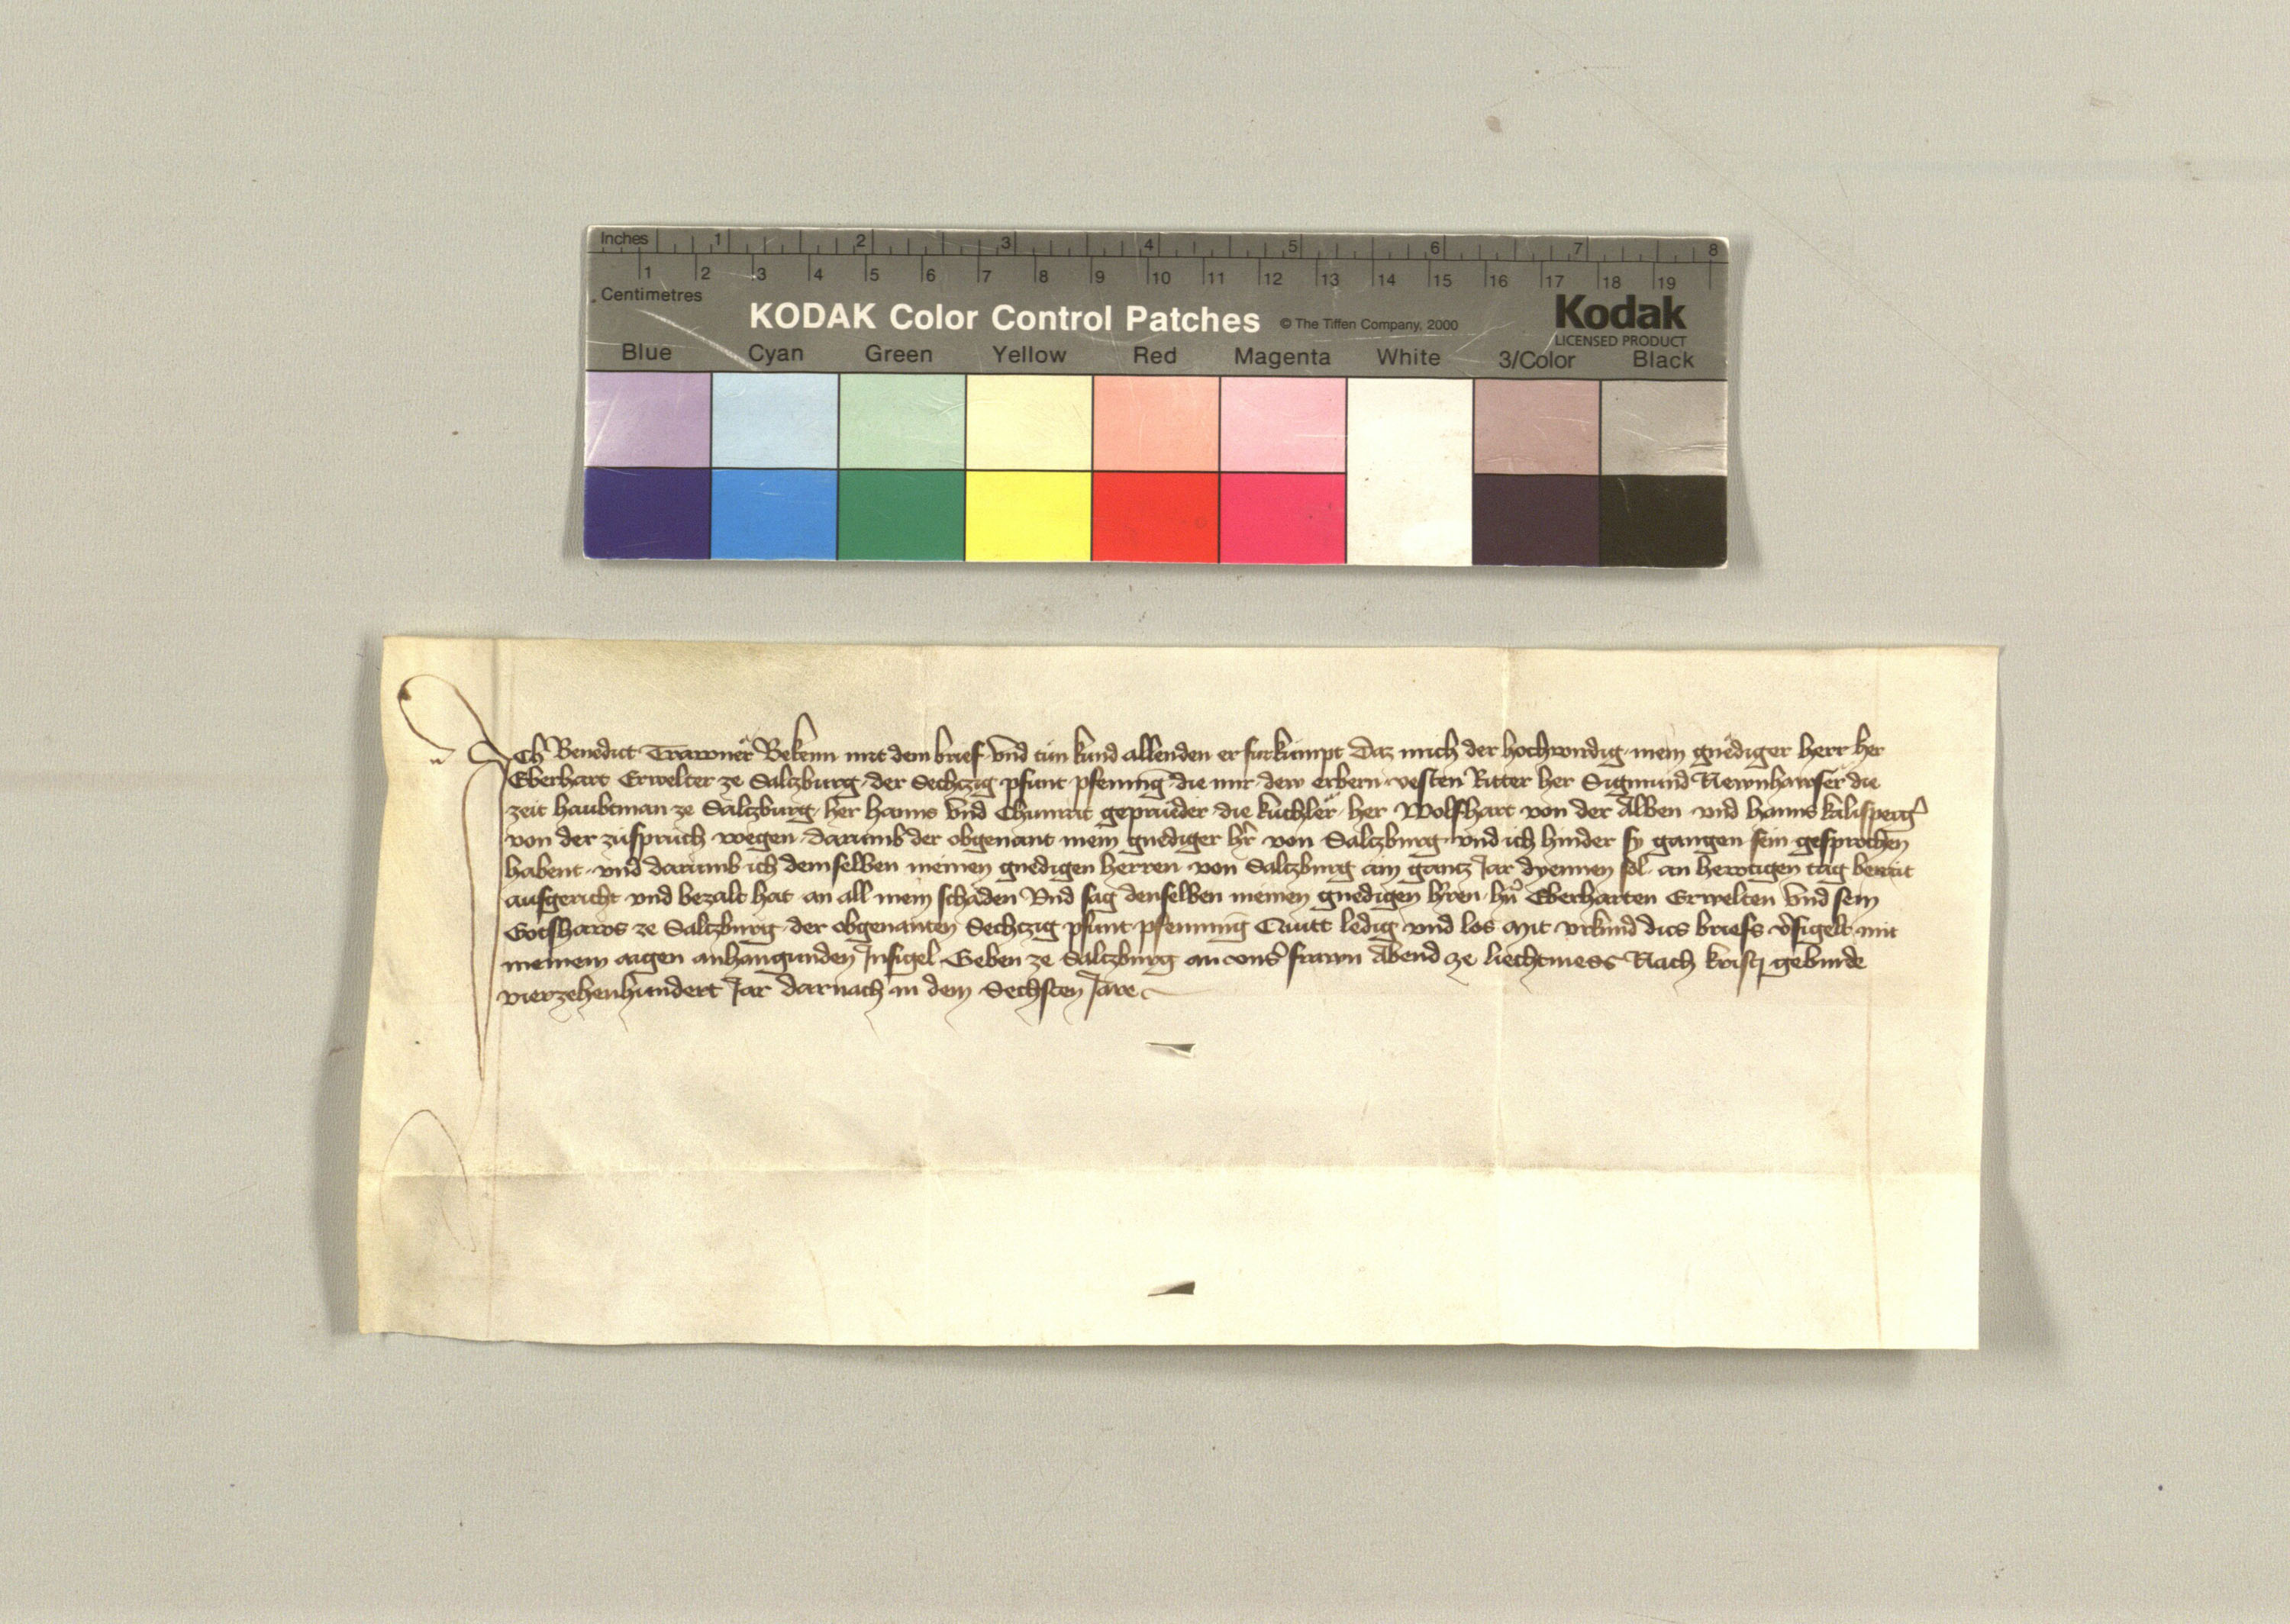 Inches 1 2 3 4 5 6 7 8
1 2 3 4 5 6 7 8 9 10 11 12 13 14 15 16 17 18 19
Centimetres
KODAK Color Control Patches © The Tiffen Company, 2000 Kodak
LICENSED PRODUCT
Blue Cyan Green Yellow Red Magenta White 3/Color Black
Ich Benedict Trawner Bekenn mit dem brief vnd tun kund allenden er furkumpt Daz mich der hochwirdig mein gnediger herr her
Eberhart Erwelter ze Saltzburg der Sechtzig pfunt pfening die mir dew erbern vesten Ritter her Sigmund Newnhawser die
zeit haubtman ze Saltzburg her Hanns vnd Chunrat geprueder die kuchler her Wolfhart von der Alben vnd Hanns kalisperg
von der zuspruch wegen darumb der obgenant mein gnediger hr von Saltzburg vnd ich hinder sy gangen sein gesprochen
habent vnd darumb ich demselben meinen gnedigen herren von Saltzburg ain gantz Jar dyennen sol an hewtigen tag berait
ausgericht vnd bezalt hat an all mein schaden Vnd sag denselben meinen gnedigen hren hn Eberharten Erwelten vnd sein
Gotshaws ze Saltzburg der obgenanten Sechtzig pfunt pfenning Quitt ledig vnd los Mit vrkund dits briefs vsigelt mit
meinem aigen anhangunden Insigel Geben ze Saltzburg an vns frawn Abend ze liechtmess Nach kristi geburde
vierzehenhundert Jar darnach in dem Sechsten Jare